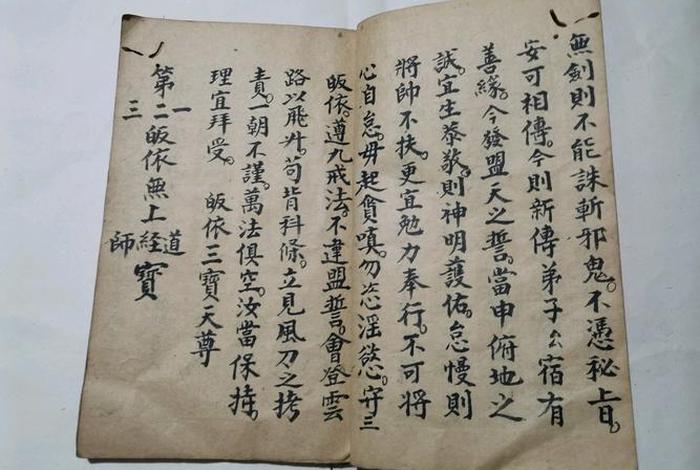 無劍則不能誅斬邪鬼。不憑秘旨。
安可相傳。今則新傳弟子厶宿有
善緣。今發盟天之誓。當申俯地之
誠。宜生恭敬。則神明護佑。怠慢則
將帥不扶。更宜勉力奉行。不可將
心自怠。毋起貪嗔。勿恣淫慾。守三
皈依。遵九戒法。不違盟誓。會登雲
路以飛升。苟背科條。立見風刀之拷
責。一朝不謹。萬法俱空。汝當保持。
理宜拜受。 皈依三寶天尊
第一二三皈依無上道経師寶